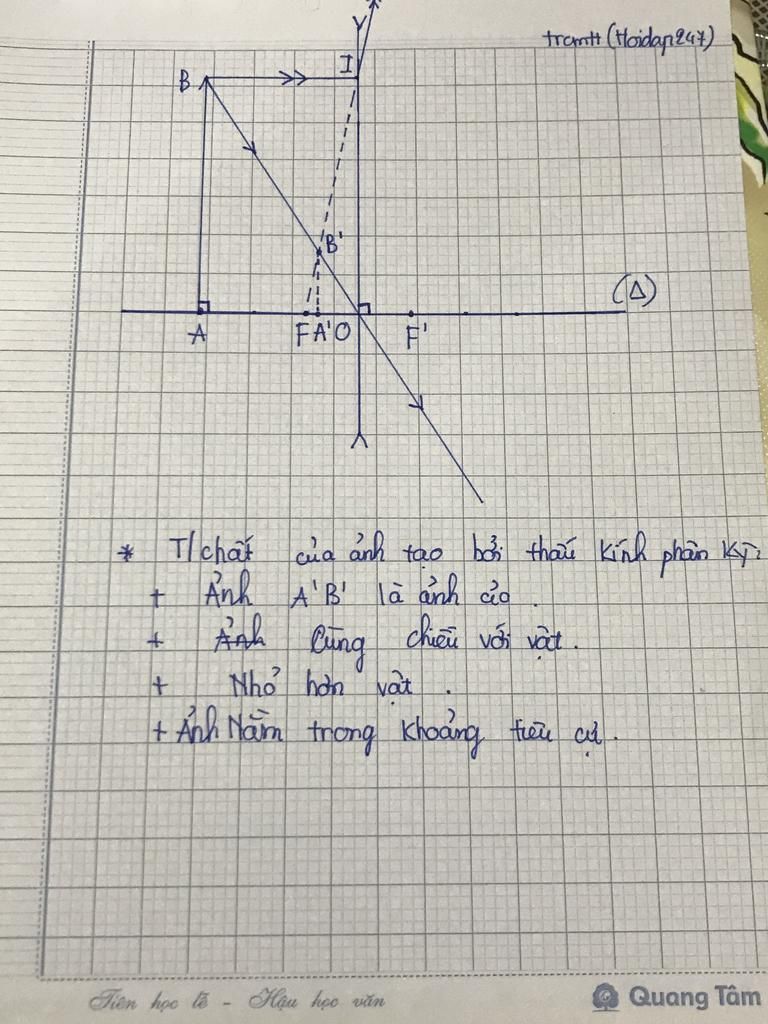 trcmtt (Hoidap247)
B
I
B'
(Δ)
A
F A' O
F'
* T/chất của ảnh tạo bởi thấu kính phân kỳ:
+ Ảnh A'B' là ảnh ảo.
+ Ảnh Cùng chiều với vật.
+ Nhỏ hơn vật.
+ Ảnh Nằm trong khoảng tiêu cự.
Tiên học lễ - Hậu học văn
Quang Tâm